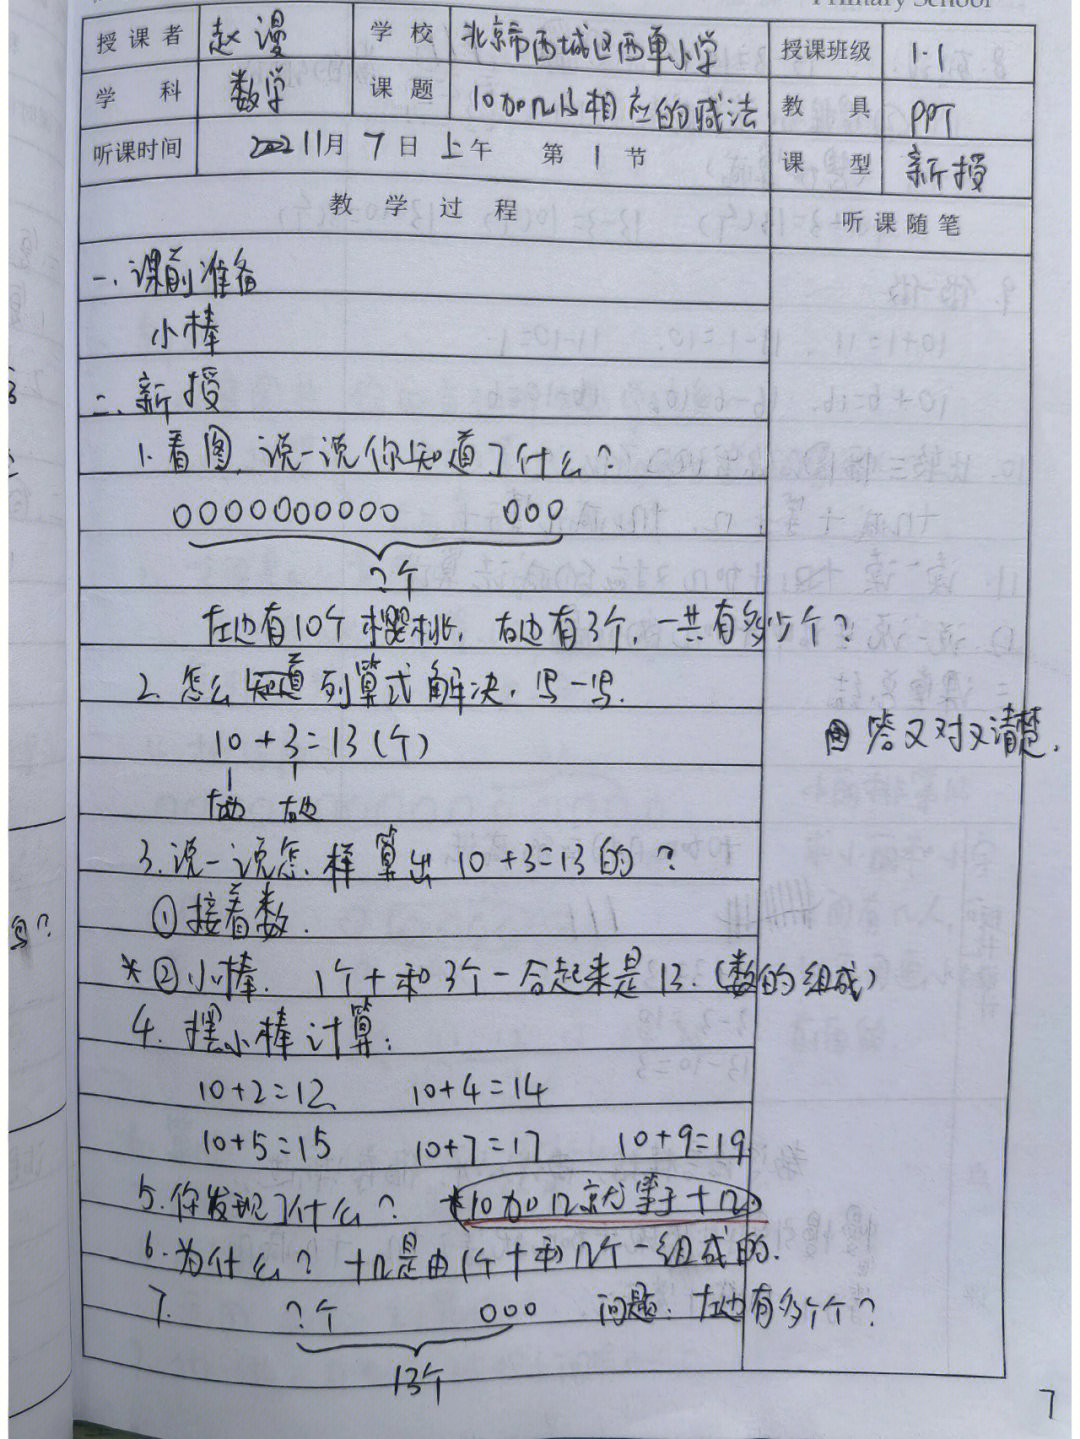 Primary School
授课者 赵漫 学校 北京市西城区西单小学 授课班级 1.1
学科 数学 课题 10加几及相应的减法 教具 PPT
听课时间 2022 11月7日 上午 第1节 课型 新授
教学过程 听课随笔
一、课前准备
小棒
二、新授
1.看图,说一说你知道了什么?
0000000000 000
?个
左边有10个樱桃,右边有3个,一共有多少个?
2.怎么知道列算式解决,写一写.
10+3=13(个)
答又对又清楚.
左边 右边
3.说一说怎样算出10+3=13的?
①接着数.
*②小棒. 1个十和3个一合起来是13.(数的组成)
4.摆小棒计算:
10+2=12 10+4=14
10+5=15 10+7=17 10+9=19
5.你发现了什么? *10加几就等于十几
6.为什么?十几是由1个十和几个一组成的.
7. ?个 000 问题:左边有多少个?
13个
写?
7